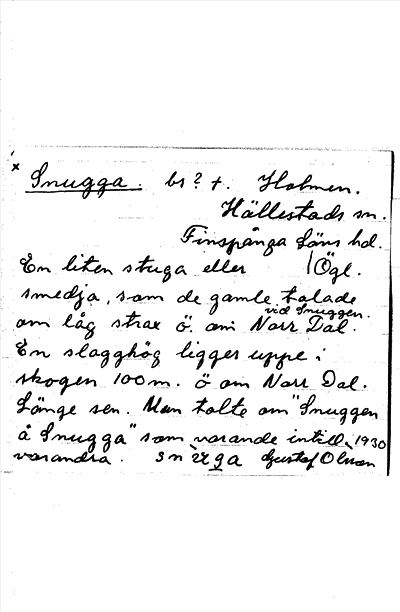 × Snugga. bs? +. Holmen.
Hällestads sn.
Finspånga Läns hd.
En liten stuga eller Ögl.
smedja, som de gamle talade
vid Snuggen.
om låg strax ö. om Norr Dal.
En slagghög ligger uppe i
skogen 100 m. ö om Norr Dal.
Länge sen. Man talte om "Snuggen
å Snugga" som varande intill 1930
varandra. Gustaf Olsson